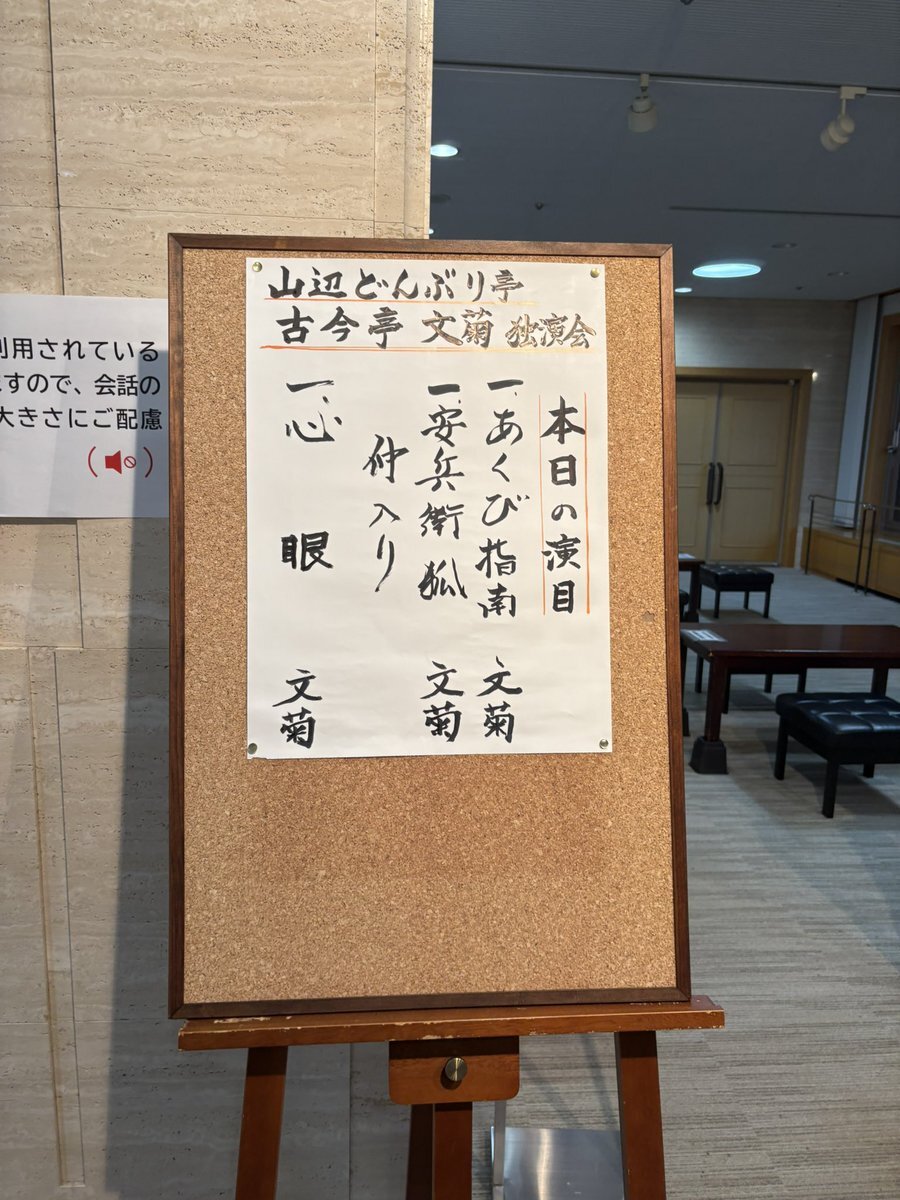 山辺どんぶり亭
古今亭 文菊 独演会
本日の演目
一、あくび指南 文菊
一、安兵衛狐 文菊
仲入り
一、心眼 文菊
利用されている
ますので、会話の
大きさにご配慮